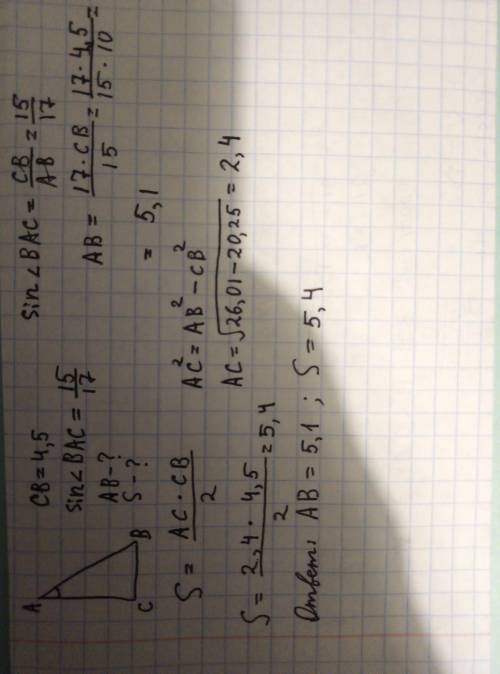 A
C
B
CB = 4,5
sin∠BAC = 15/17
AB - ?
S - ?
sin∠BAC = CB/AB = 15/17
AB = 17·CB/15 = 17·4,5/15·10 =
= 5,1
S = AC·CB/2
AC² = AB² - CB²
AC = √26,01 - 20,25 = 2,4
S = 2,4·4,5/2 = 5,4
Ответ: AB = 5,1 ; S = 5,4